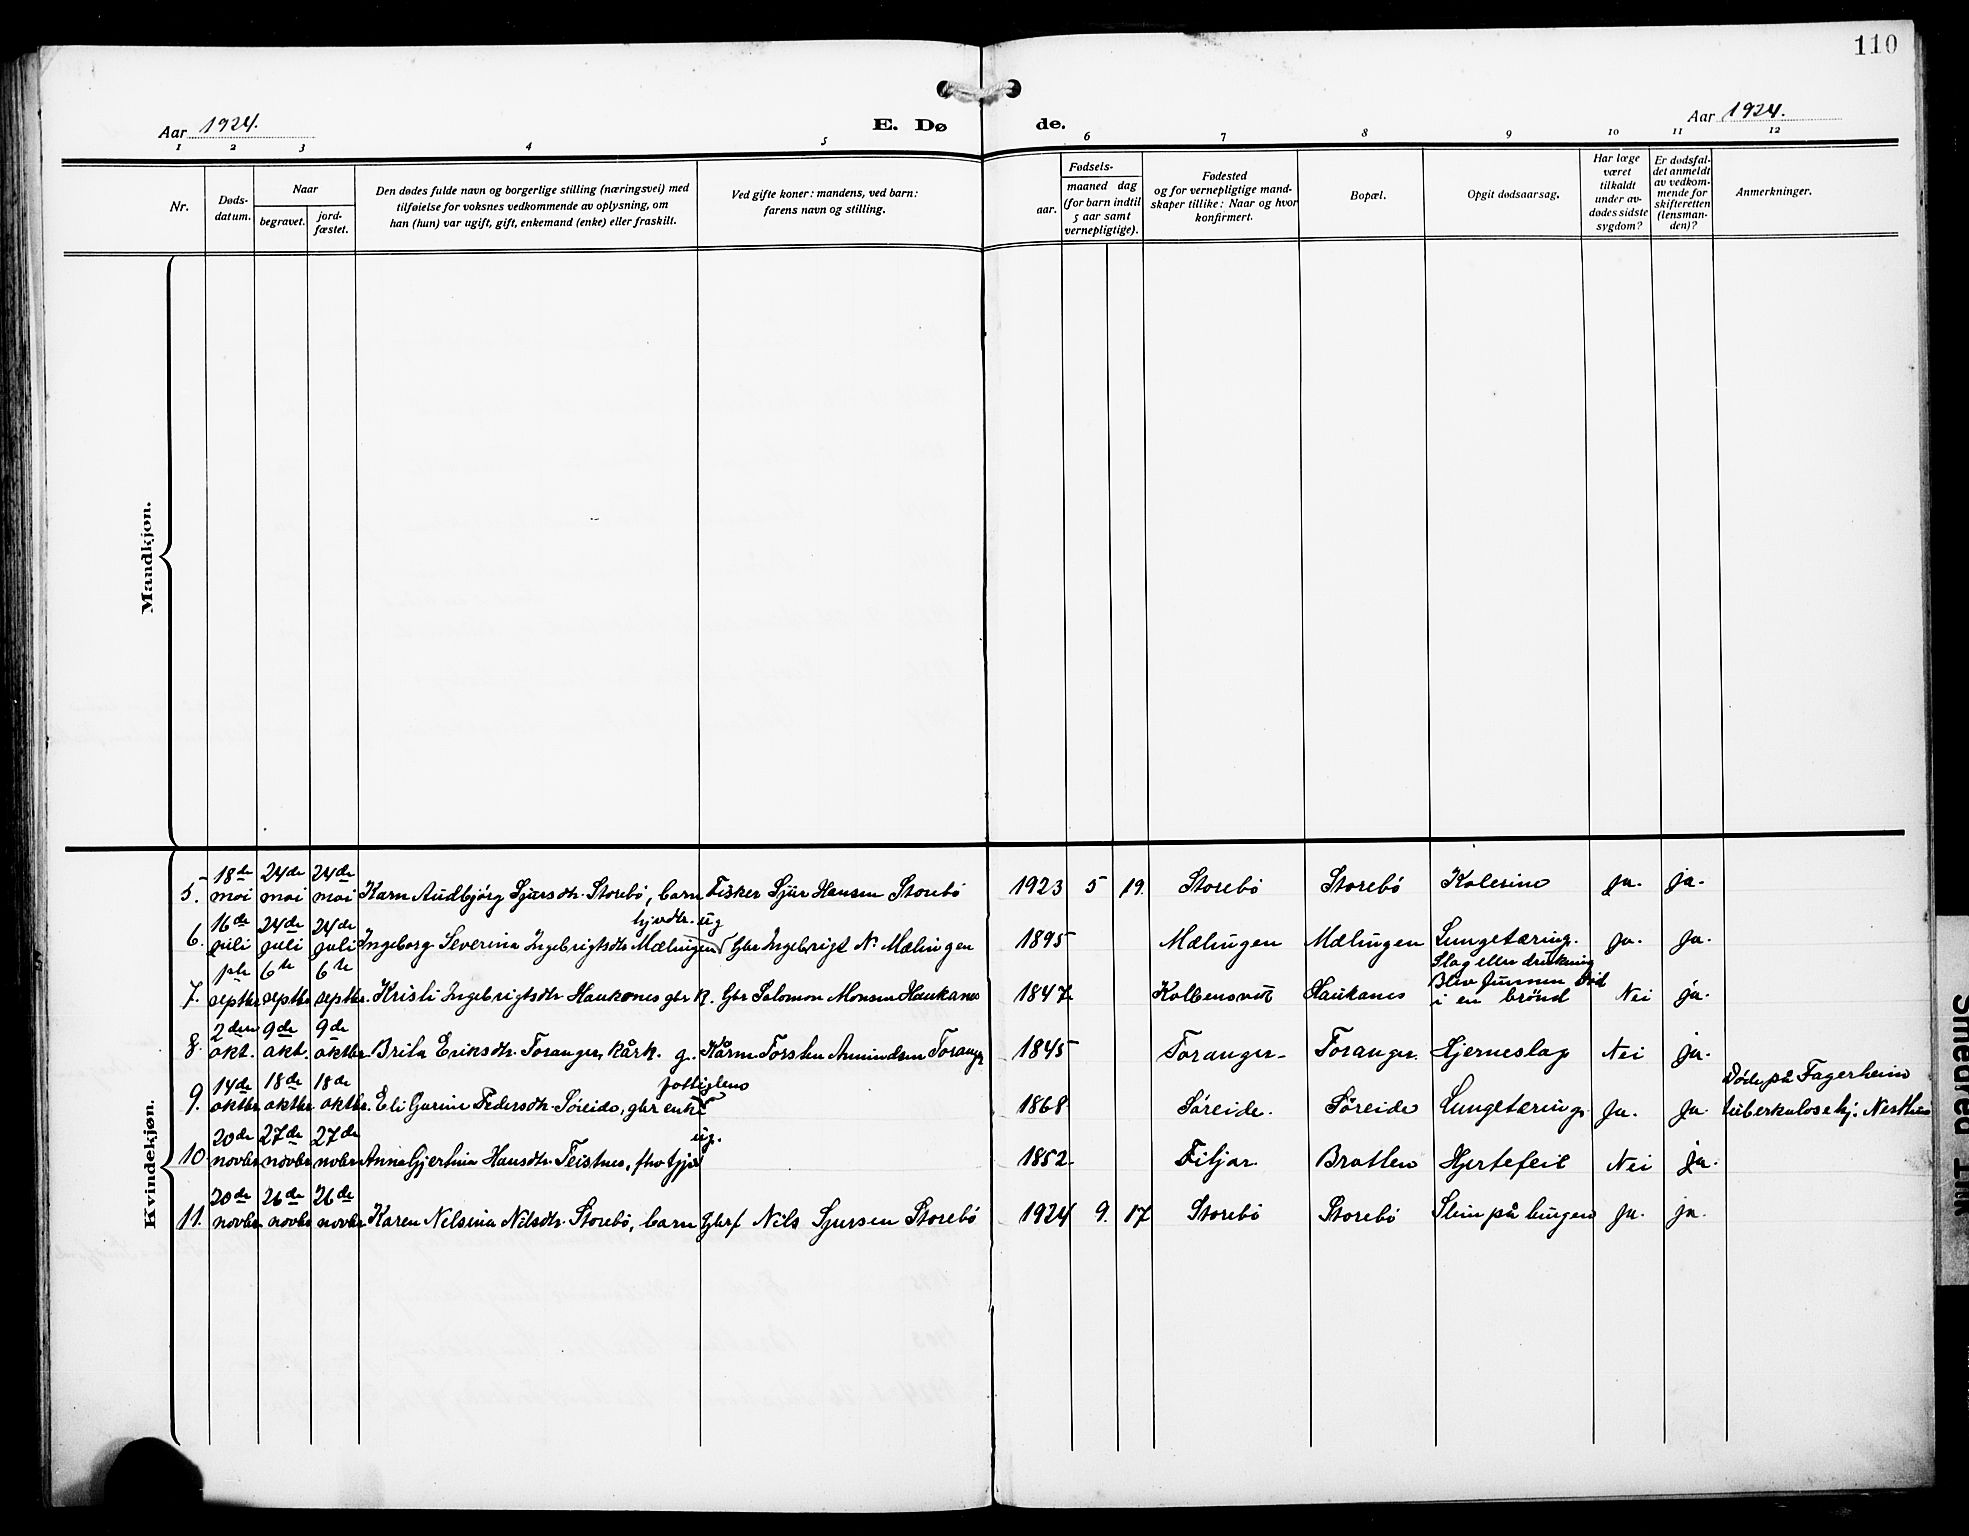 110
Aar 1924.
E. Døde.
Aar 1924.
1 2 3 4 5 6 7 8 9 10 11 12
Nr.
Døds-
datum.
Naar
begravet.
jord-
fæstet.
Den dødes fulde navn og borgerlige stilling (næringsvei) med
tilføielse for voksnes vedkommende av oplysning, om
han (hun) var ugift, gift, enkemand (enke) eller fraskilt.
Ved gifte koner: mandens, ved barn:
farens navn og stilling.
Fødsels-
aar.
maaned dag
(for barn indtil
5 aar samt
vernepligtige).
Fødested
og for vernepligtige mand-
skaper tillike: Naar og hvor
konfirmert.
Bopæl.
Opgit dødsaarsag.
Har læge
været
tilkaldt
under av-
dødes sidste
sygdom?
Er dødsfal-
det anmeldt
av vedkom-
mende for
skifteretten
(lensman-
den)?
Anmerkninger.
Mandkjøn.
Kvindekjøn.
18de 24de 24de
5. mai mai mai Karn Audbjörg Sjursdtr. Storebö, barn Fisker Sjur Hansen Storebö 1923 5 19. Storebö Storebö Kolerine ja. ja.
16de 24de 24de hjvdtr. ug
6. juli juli juli Ingeborg Severina Ingebrigtsdtr Mælingen Gbr Ingebrigt N. Mælingen 1895 Mælingen Mælingen Lungetæring. ja. ja.
6te 6te Slag eller drukning
7. septbr septbr septbr. Kristi Ingebrigtsdtr. Haukanes gbr k. Gbr Salomon Monsen Haukanes 1847 Kolbensvik Haukanes Blev funnen död i en brönd Nei ja.
2den 9de 9de
8. okt. okt. oktbr. Brita Eriksdtr. Foranger, kårk. g. Kårm Torsten Amundsen Foranger 1845 Foranger Foranger. Hjerneslag Nei ja.
14de 18de 18de fattiglem
9. oktbr oktbr oktbr. Eli Gurine Pedersdtr. Söreide, gbr enke 1868 Söreide. Söreide Lungetæring. Ja. ja. Döde på Fagerheim tuberkulosehj. Nesttun
20de 27de 27de ug.
10. novbr novbr novbr Anna Gjertina Hansdtr. Teistnes, 1852 Fitjar Bratten Hjertefeil Nei ja.
20de 26de 26de
11. novbr. novbr novbr Karen Nelsina Nilsdtr. Storebö, barn Gbrf Nils Sjursen Storebö 1924 9. 17 Storebö Storebö Slim på lungen ja. ja.